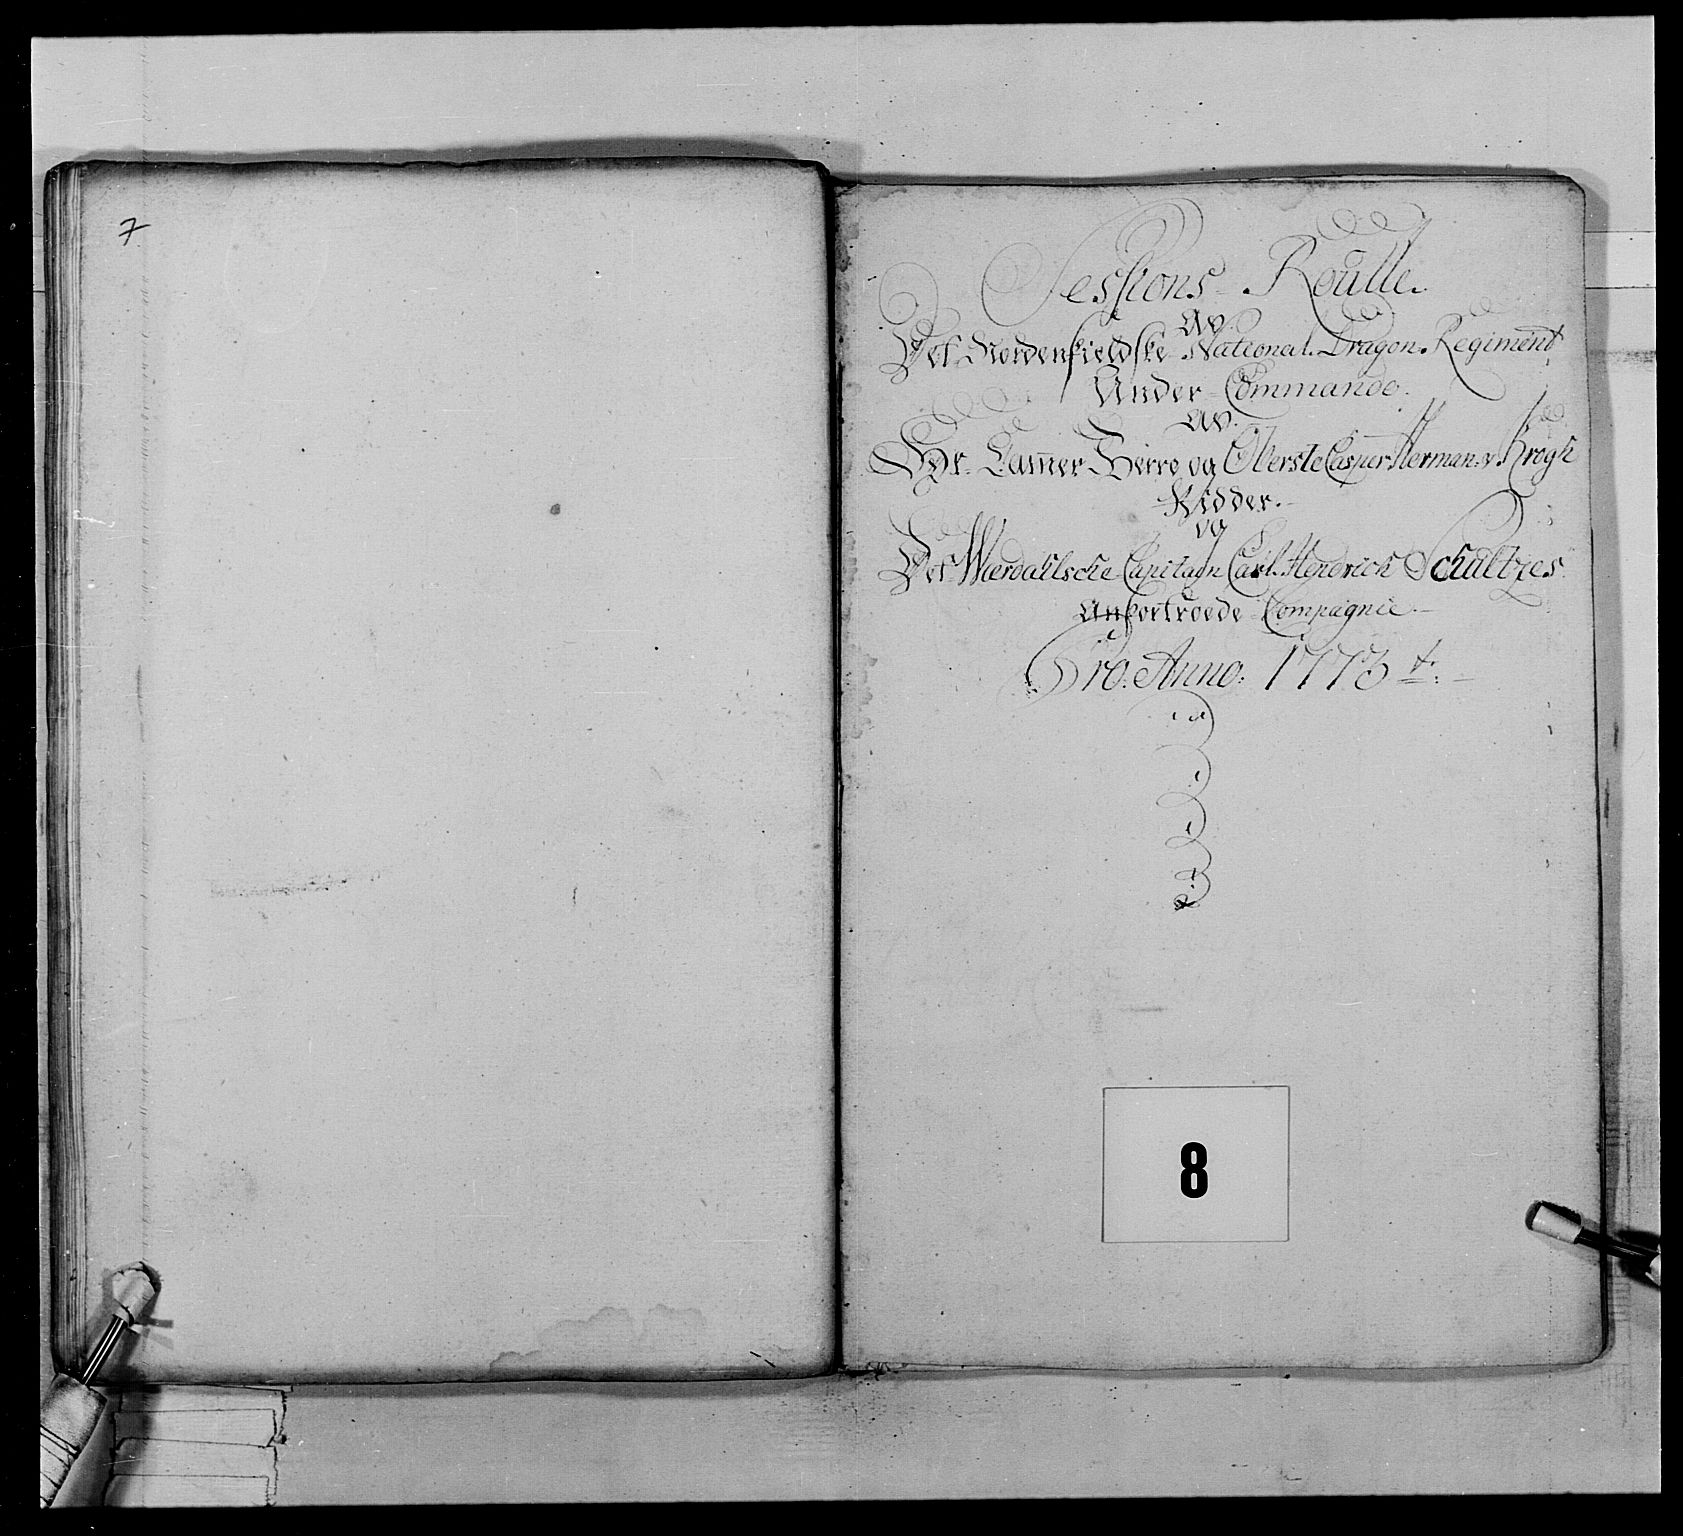 7
Sessions-Roulle.
Av.
Det Nordenfieldske National Dragon Regiment
Under Commando.
Av.
Hr. Camer Herre og Oberste Casper Herman v. Krogh
Ridder.
og
Det Wærdahlsche Capitain Carl Hendrich Schultzes
Anfortroede Compagnie.
Pro. Anno: 1773
8